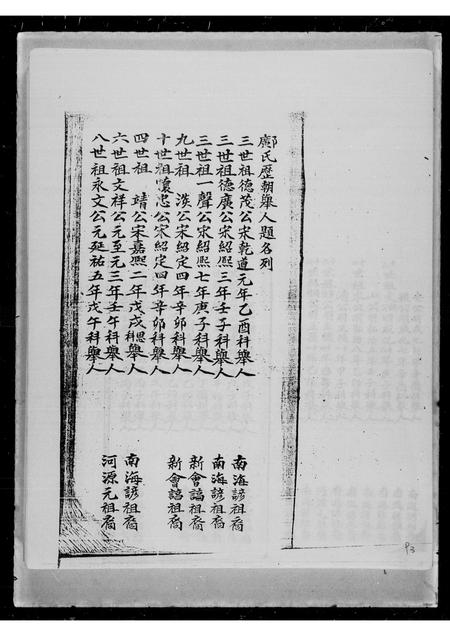 鄺氏歷朝舉人題名列
三世祖德茂公宋乾道元年乙酉科舉人 南海諺祖裔
三世祖德廣公宋紹熙三年壬子科舉人 南海諺祖裔
三世祖一聲公宋紹熙七年庚子科舉人 新會諺祖裔
九世祖 渙公宋紹定四年辛卯科舉人 新會諺祖裔
十世祖懷忠公宋紹定四年辛卯科舉人
四世祖 靖公宋嘉熙二年戊戌科舉人 南海諺祖裔
六世祖文祥公元至元三年壬午科舉人 河源元祖裔
八世祖永文公元延祐五年戊午科舉人
P3